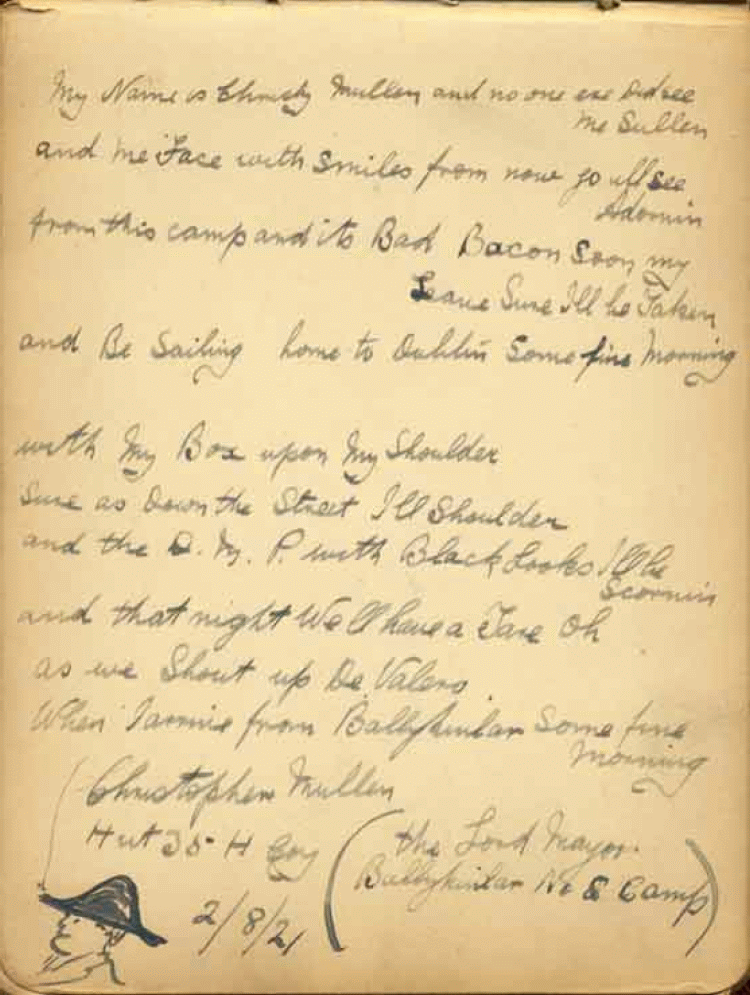 My Name is Christy Mullen and no one ere did see
me Sullen
and me Face with Smiles from now go uff see
Adornin
from this camp and its Bad Bacon Soon my
Leave Sure Ill be Taken
and Be Sailing home to Dublin Some fine Morning
with My Box upon My Shoulder
Sure as Down the Street Ill Shoulder
and the D. M. P. with Black Looks Ill be
Scornin
and that night We ll have a Tare Oh
as we Shout up De Valero
When I arrive from Ballykinlar Some fine
Morning
Christopher Mullen
Hut 35 H Coy
(the Lord Mayor
Ballykinlar No 2 Camp)
2/8/21